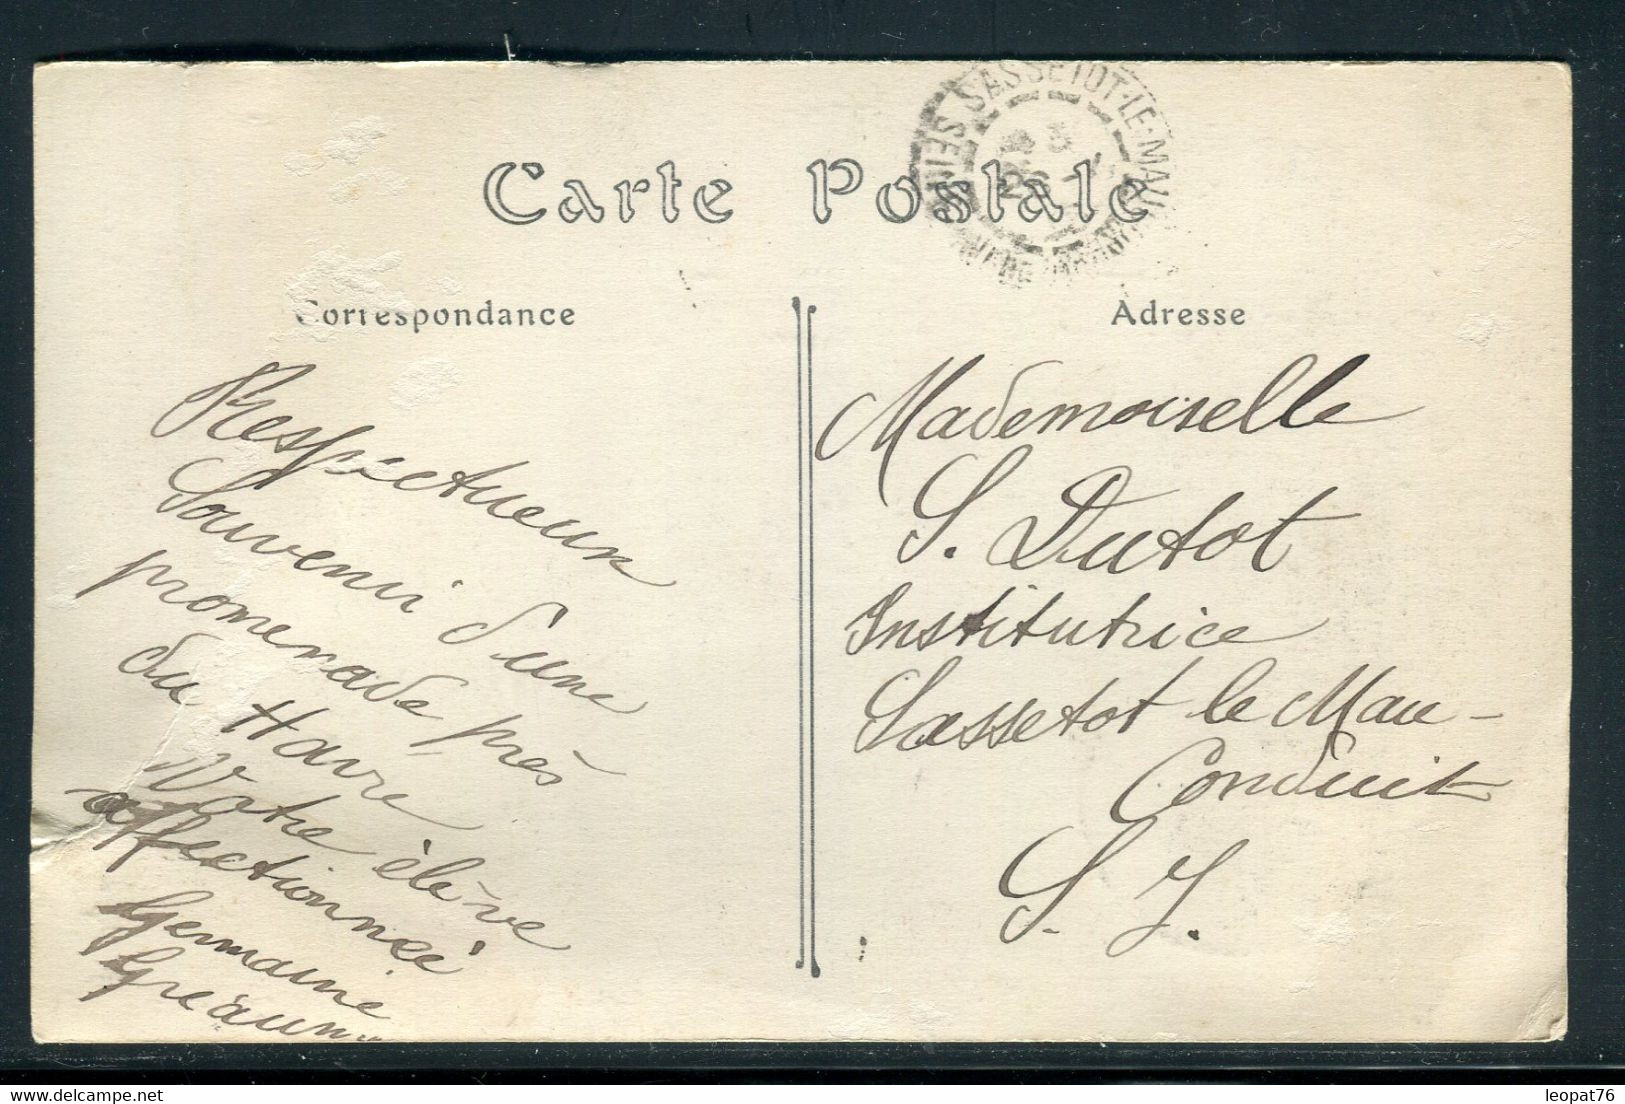 Carte Postale
SASSETOT-LE-MAU
SEINE INFRE
Correspondance
Respectueux
Souvenir d'une
promenade près
du Havre
Votre élève
affectionnée
Germaine
Adresse
Mademoiselle
S. Dutot
Institutrice
Sassetot le Mau-
Conduit
S. I.
leopat76